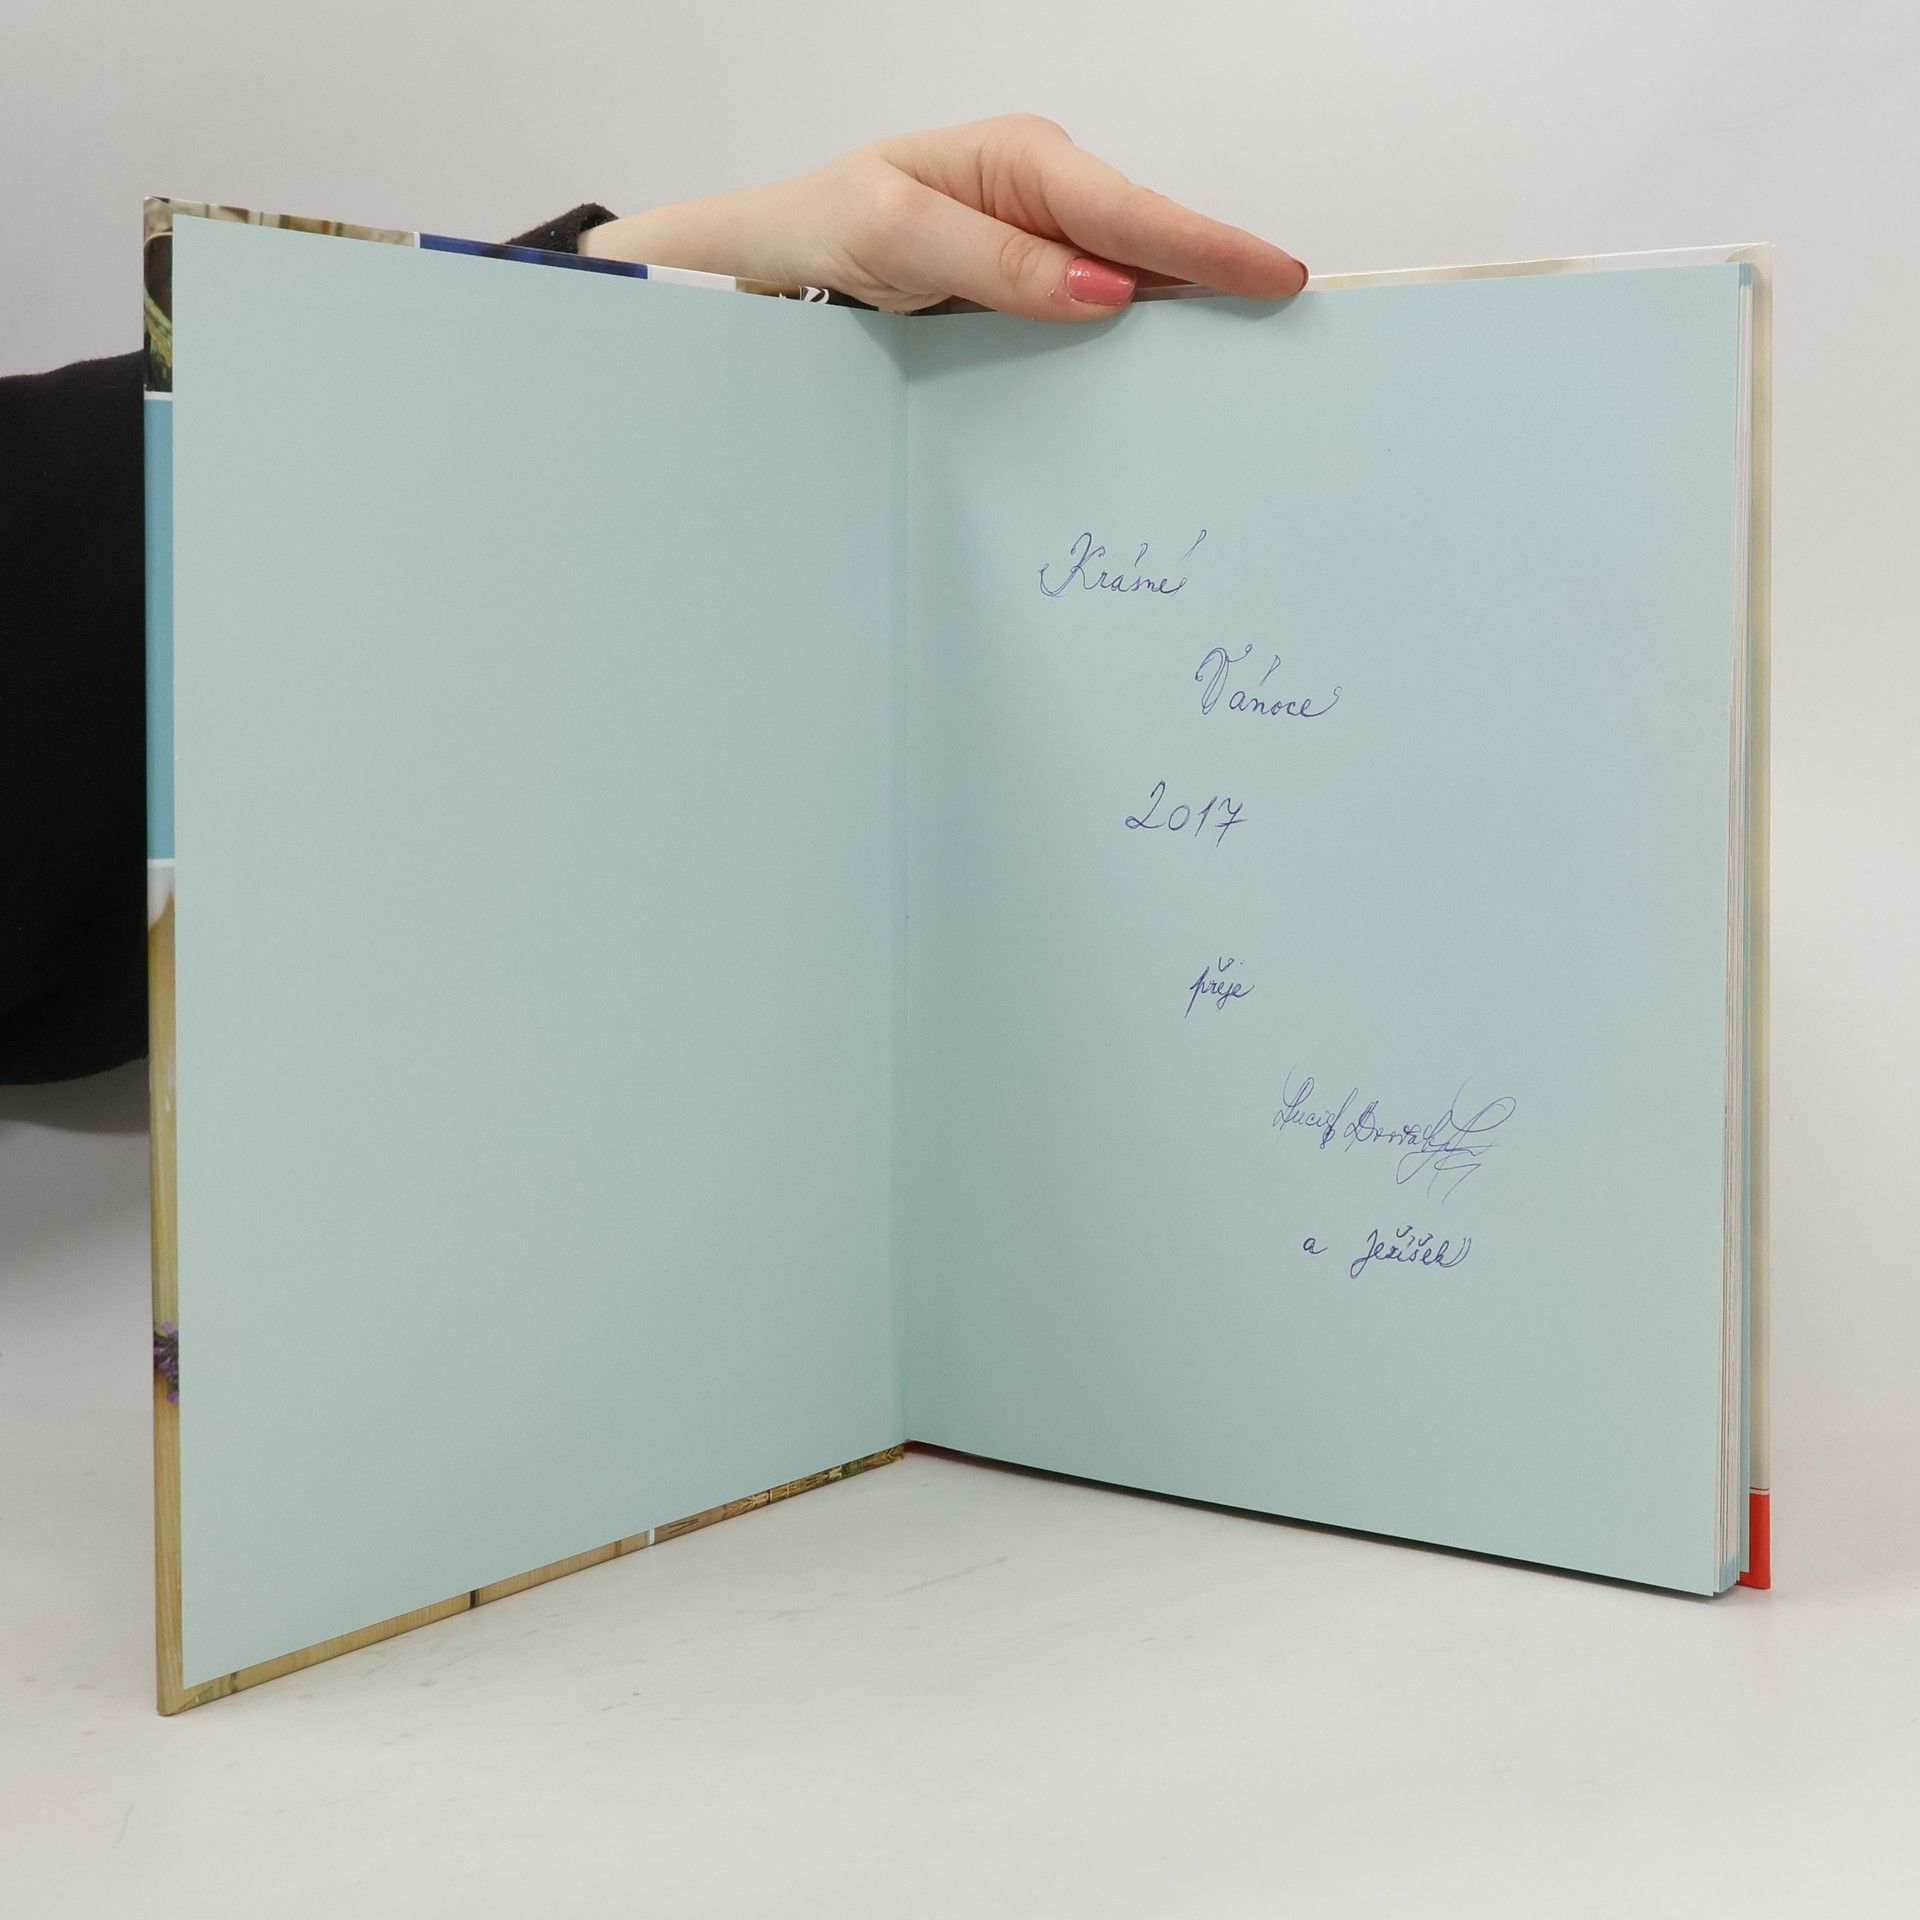 Krásné
Vánoce
2017
přeje
Lucie Dvořáková
a Ježíšek